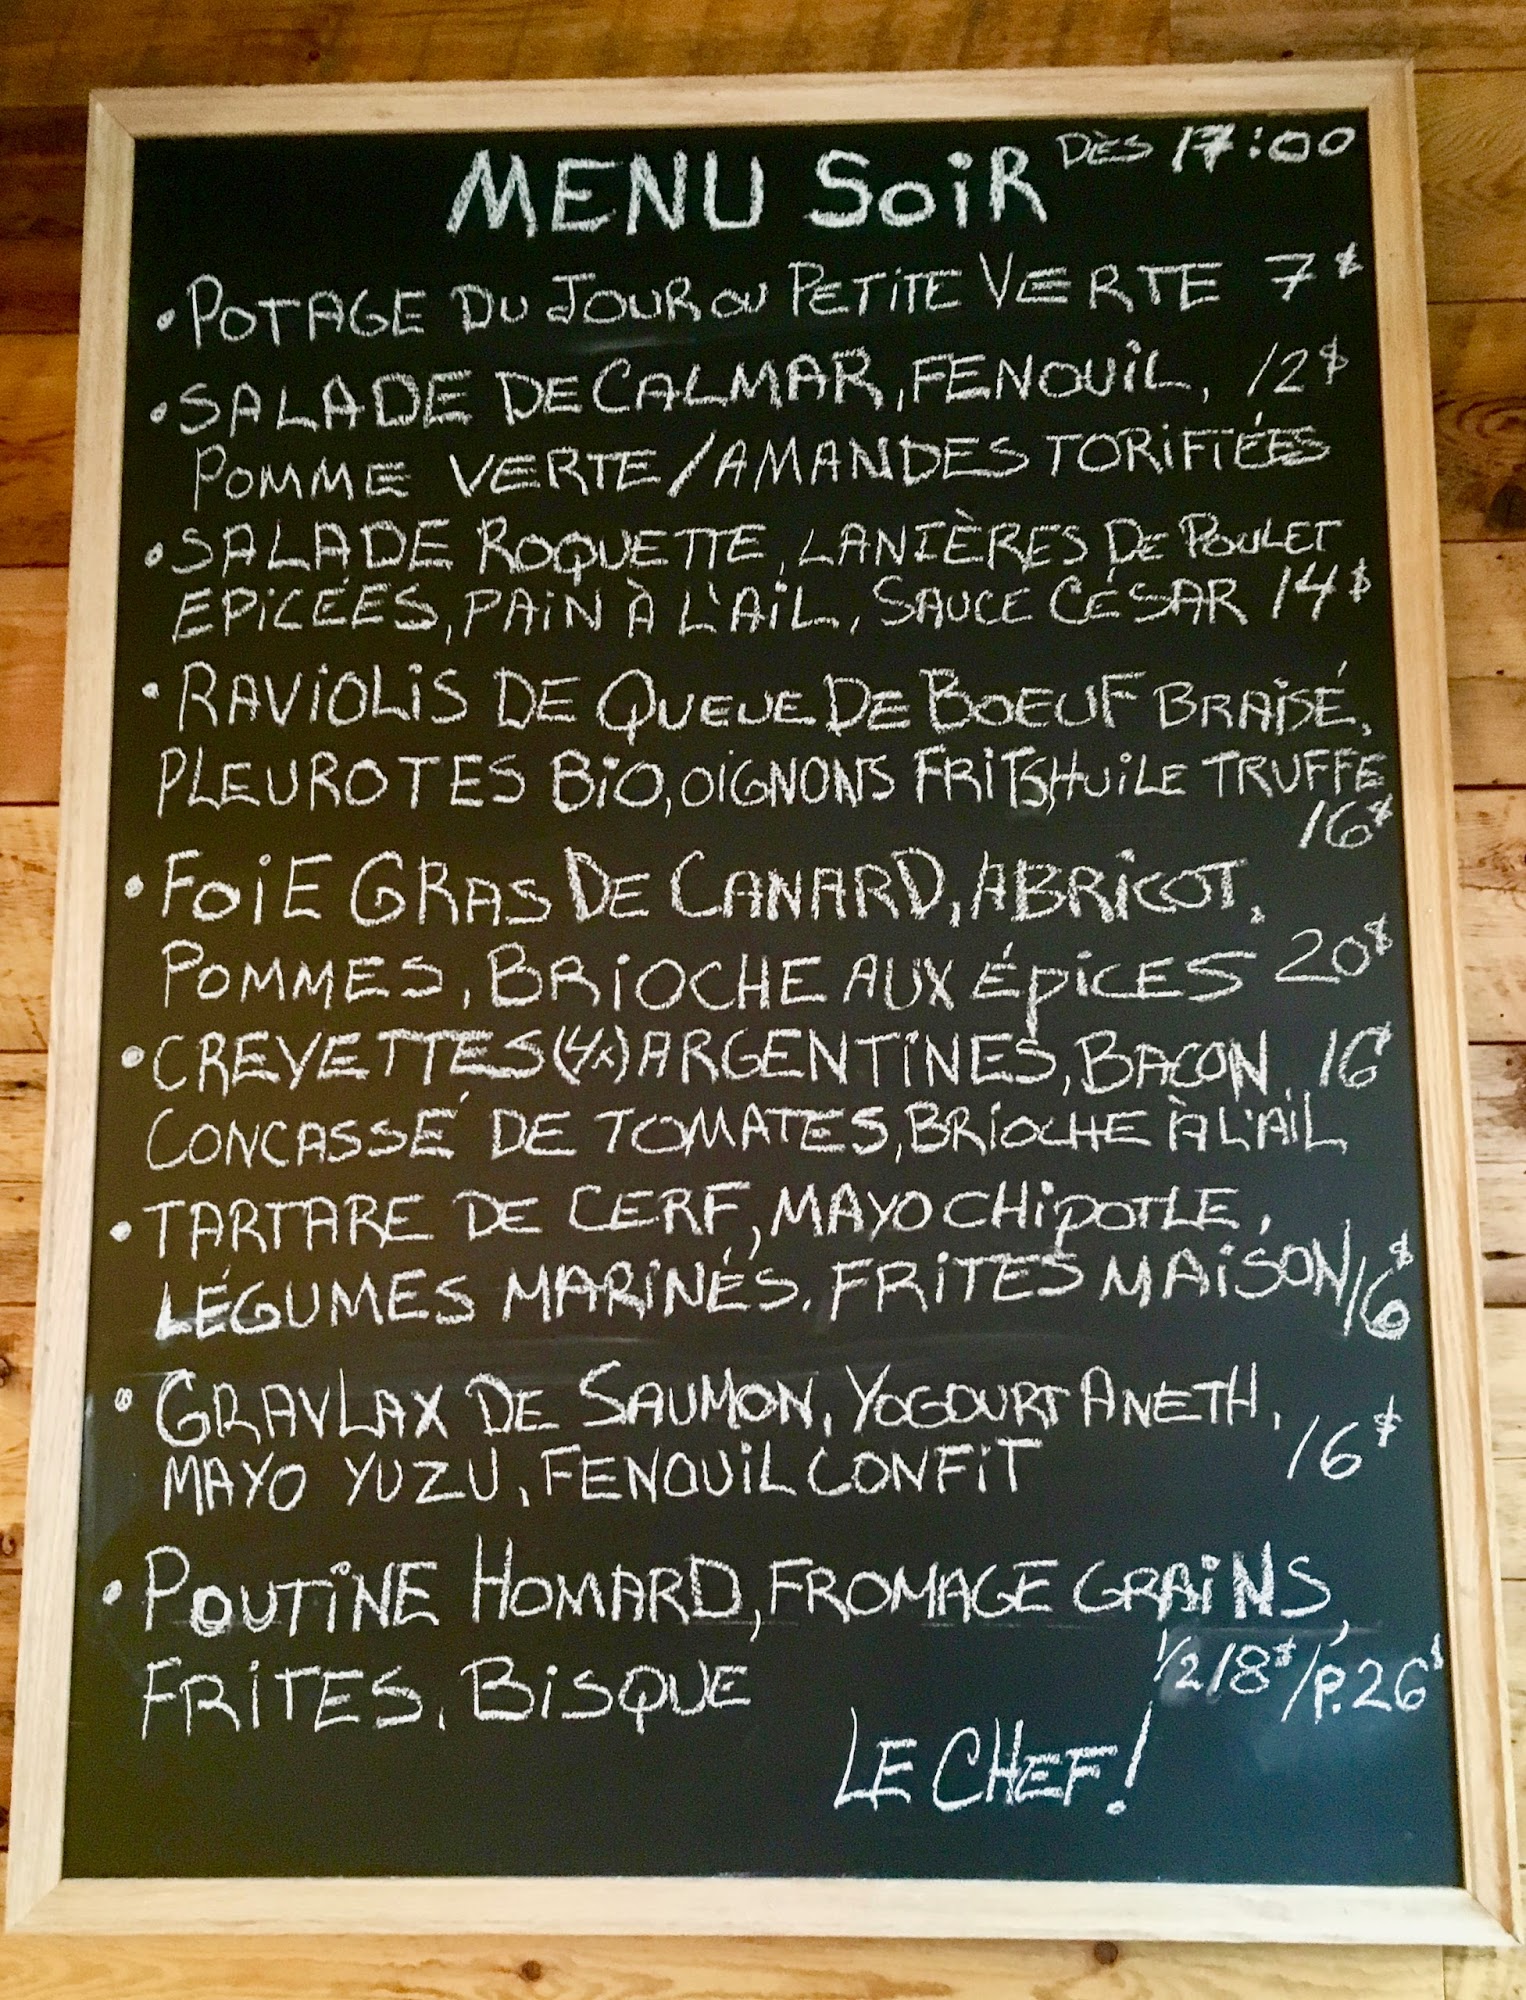 MENU SOIR DÈS 17:00
• POTAGE DU JOUR OU PETITE VERTE 7$
• SALADE DE CALMAR, FENOUIL, 12$
POMME VERTE/AMANDES TORIFIÉES
• SALADE ROQUETTE, LANIÈRES DE POULET
EPICÉES, PAIN À L'AIL, SAUCE CÉSAR 14$
• RAVIOLIS DE QUEUE DE BOEUF BRAISÉ,
PLEUROTES BIO, OIGNONS FRITS, HUILE TRUFFE
16$
• FOIE GRAS DE CANARD, ABRICOT,
POMMES, BRIOCHE AUX ÉPICES 20$
• CREVETTES (4x) ARGENTINES, BACON, 16$
CONCASSÉ DE TOMATES, BRIOCHE À L'AIL
• TARTARE DE CERF, MAYO CHIPOTLE,
LÉGUMES MARINÉS, FRITES MAISON 16$
• GRAVLAX DE SAUMON, YOGOURT ANETH,
MAYO YUZU, FENOUIL CONFIT 16$
• POUTINE HOMARD, FROMAGE GRAINS,
FRITES, BISQUE 1/2 18$/P. 26$
LE CHEF!